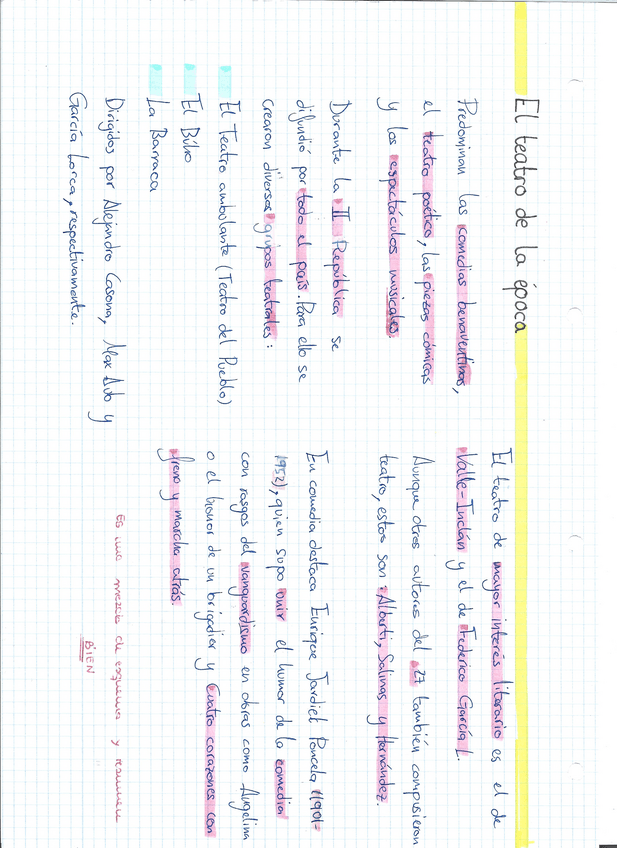 El teatro de la época
Predominan las comedias benaventinas,
el teatro poético, las piezas cómicas
y los espectáculos musicales.
Durante la II República se
difundió por todo el país. Para ello se
crearon diversos grupos teatrales:
El Teatro ambulante (Teatro del Pueblo)
El Búho
La Barraca
Dirigidos por Alejandro Casona, Max Aub y
García Lorca, respectivamente.
El teatro de mayor interés literario es el de
Valle-Inclán y el de Federico García L.
Aunque otros autores del 27 también compusieron
teatro, estos son: Alberti, Salinas y Hernández.
En comedia destaca Enrique Jardiel Poncela (1901-
1952), quien supo unir el humor de la comedia
con rasgos del vanguardismo en obras como Angelina
o el honor de un brigadier y Cuatro corazones con
freno y marcha atrás.
Es una mezcla de esquema y resumen
BIEN